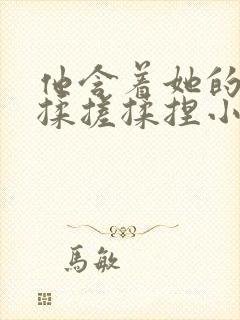 他含着她的
揉搓揉捏小
馬敏